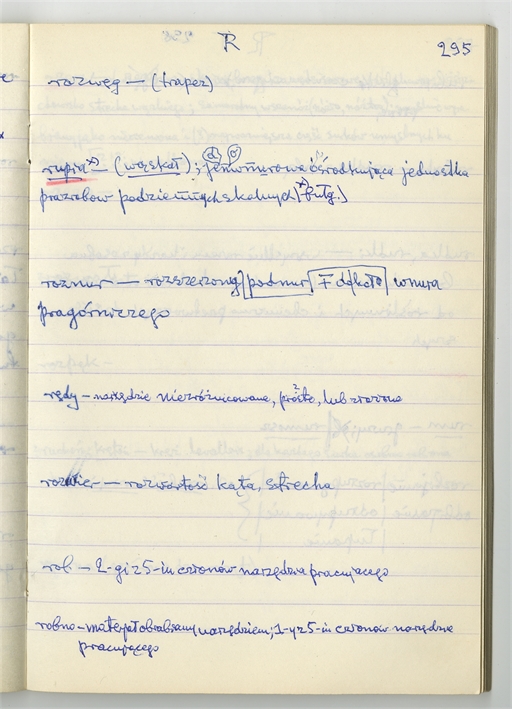 R
295
rozwęg — (trapez)
rupia x) — (wąskał); jednomurowa ośrodkująca jednostka
prazrobów podziemnych skalnych x) bułg.)
rozmur — rozszerzony podmur F dokoła wnura
pragórniczego
rędy — narzędzie niezróżnicowane, proste, lub złożone
rozwier — rozwartość kąta, strzecha
rob — 2-gi z 5-in członów narzędzia pracującego
robno — materjał obrabiany narzędziem; 1-y z 5-in członów narzędzia
pracującego